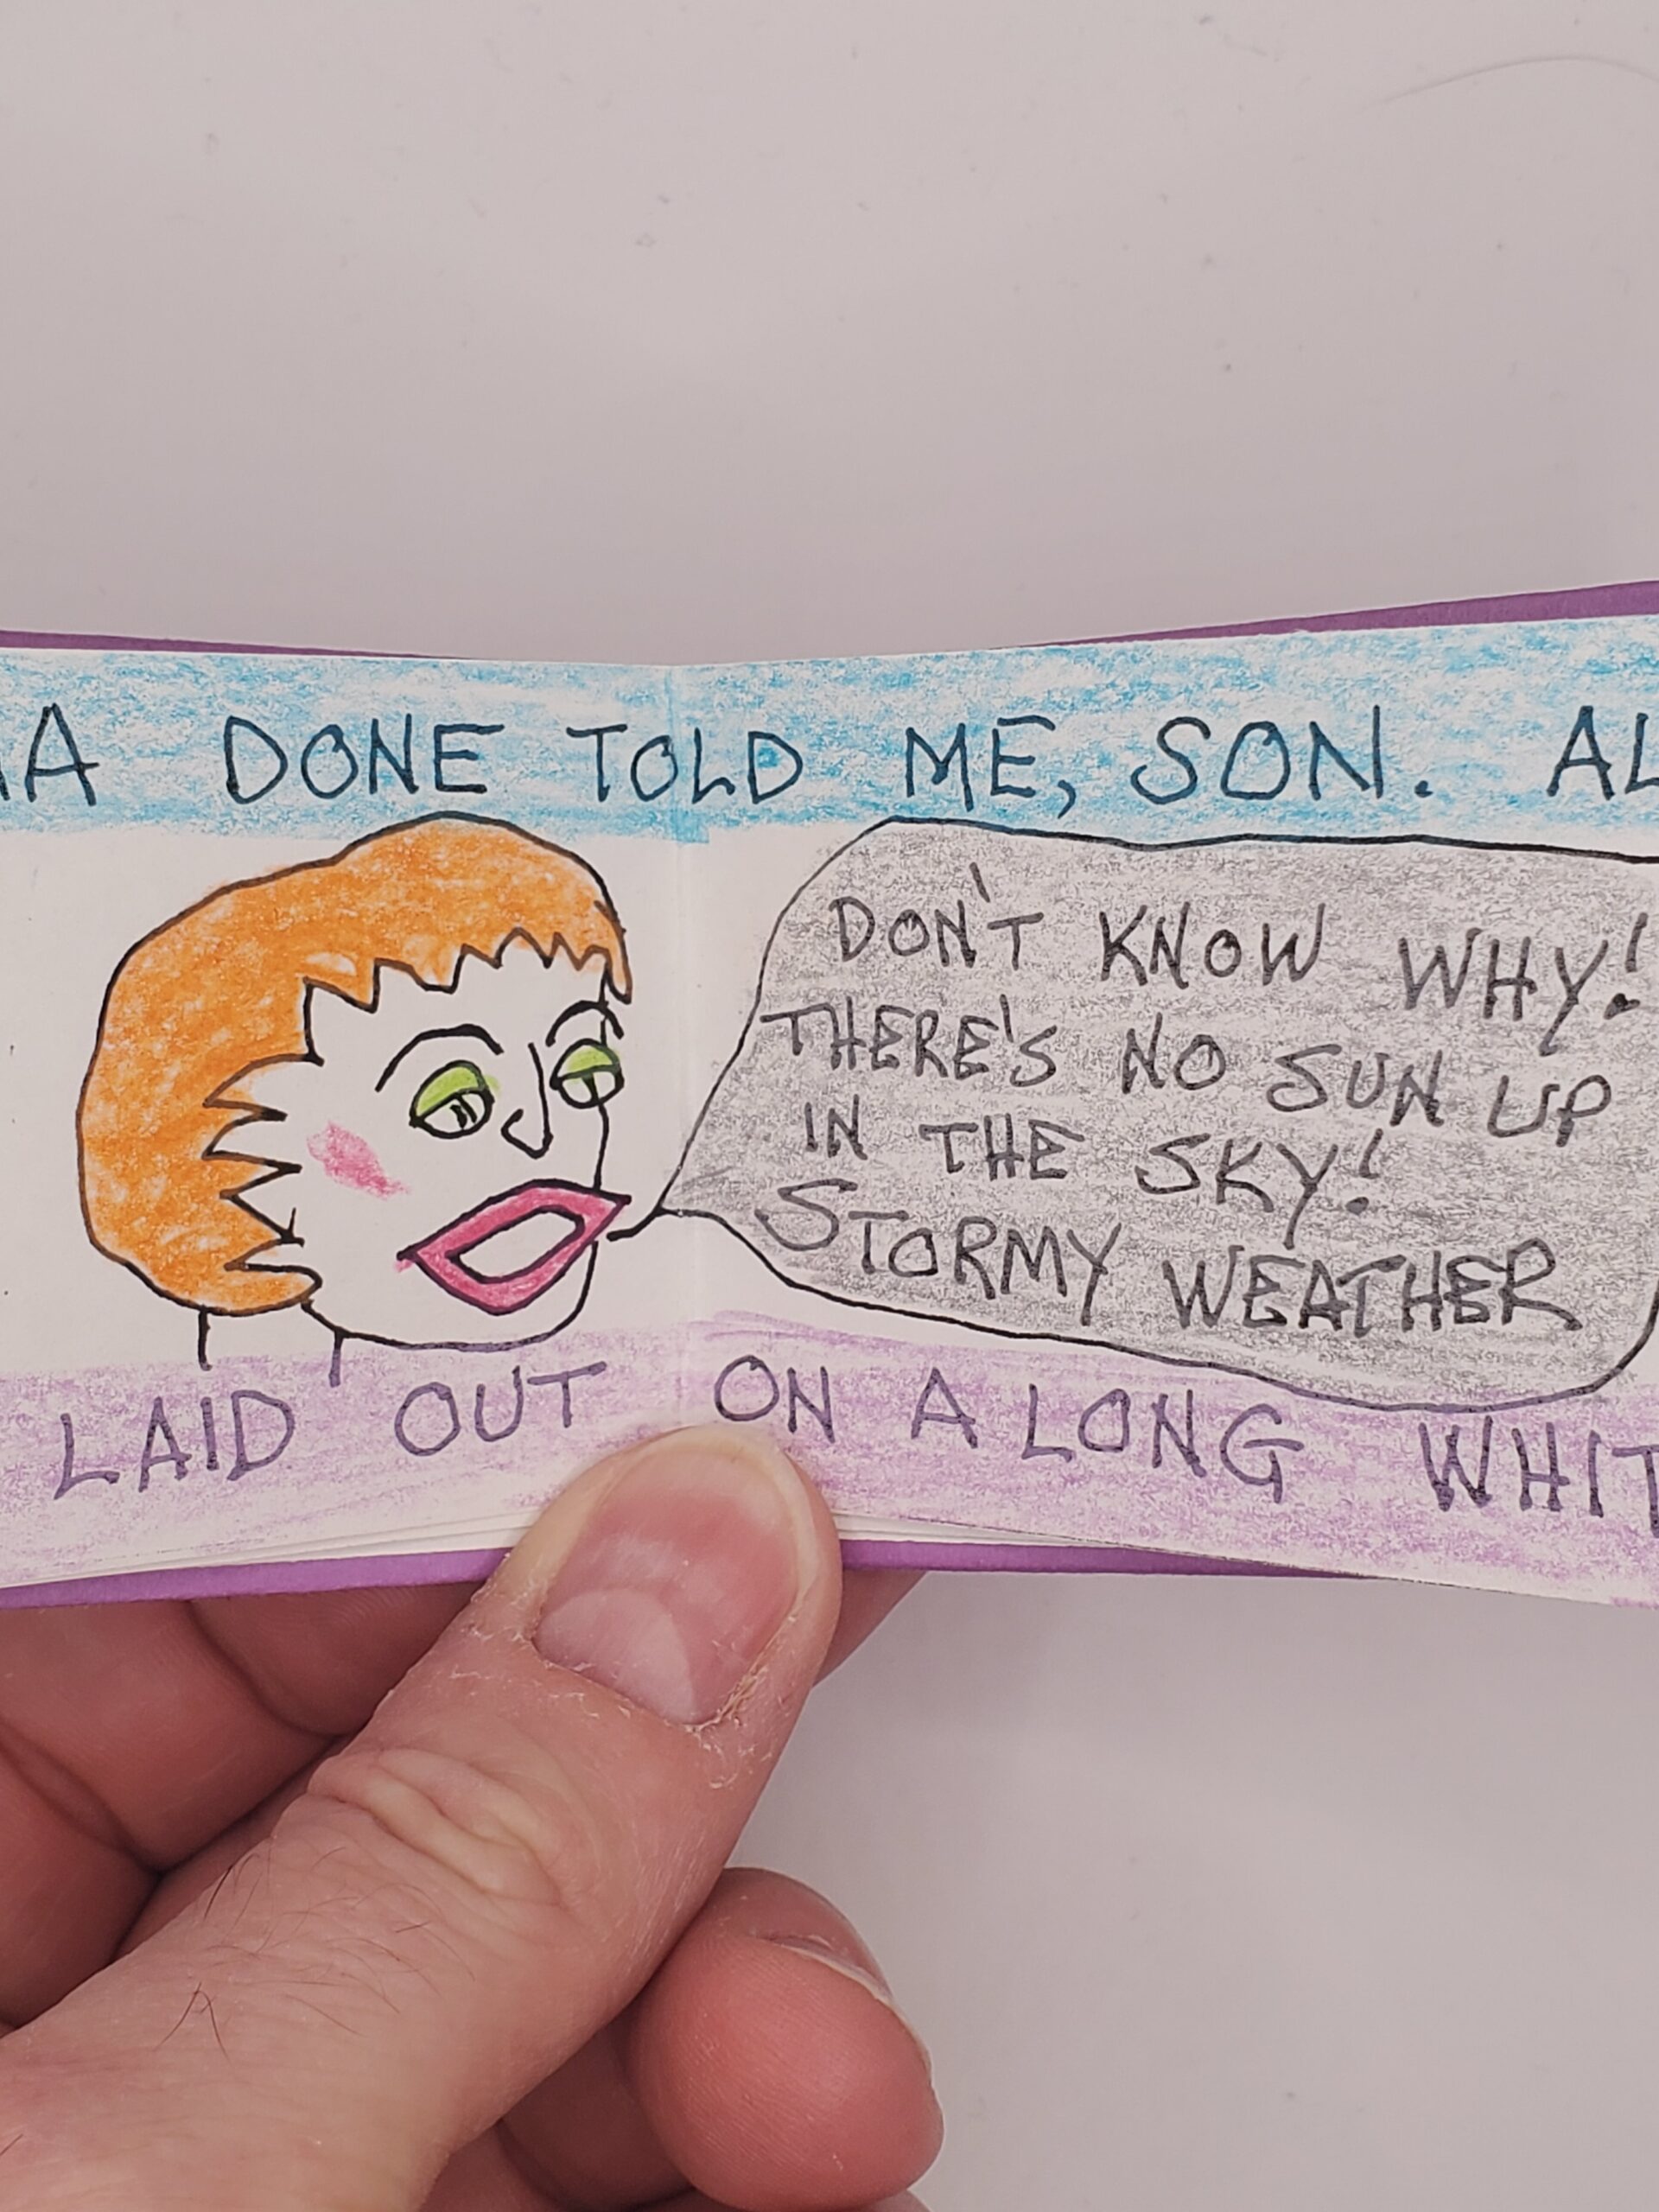 A DONE TOLD ME, SON. AL
DON'T KNOW WHY!
THERE'S NO SUN UP
IN THE SKY!
STORMY WEATHER
LAID OUT ON A LONG WHIT